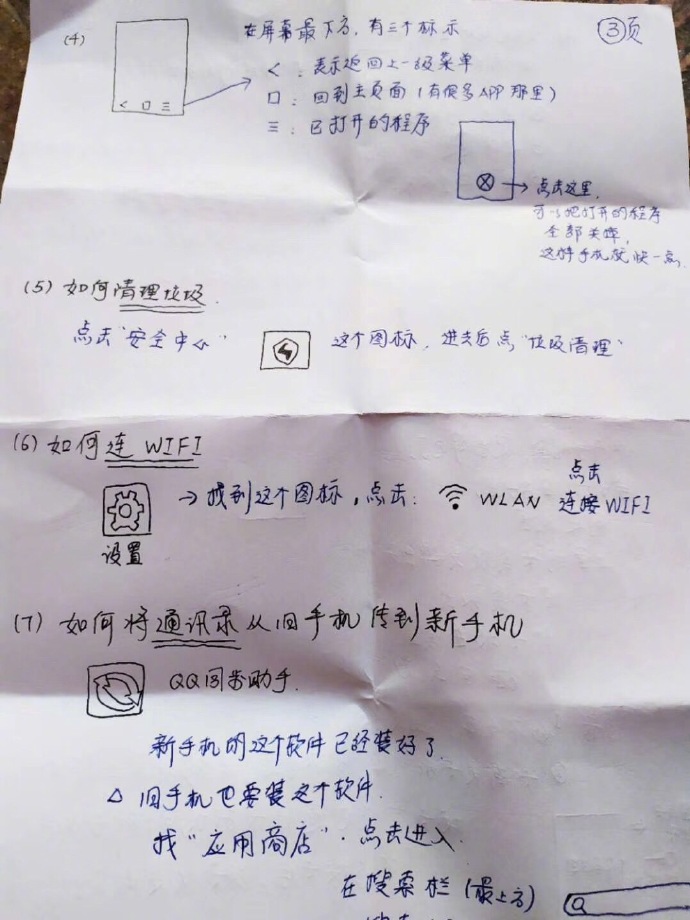 ③页
(4) 在屏幕最下方,有三个标示
< : 表示返回上一级菜单
口 : 回到主页面(有很多APP那里)
三 : 已打开的程序
< 口 三
→ 点击这里,
可以把打开的程序
全部关掉,
这样手机就快一点.
(5) 如何清理垃圾.
点击“安全中心” 这个图标, 进去后点“垃圾清理”
(6) 如何连 WIFI
→ 找到这个图标, 点击: WLAN 点击
连接WIFI
设置
(7) 如何将通讯录从旧手机传到新手机
QQ同步助手.
新手机的这个软件已经装好了.
△ 旧手机也要装这个软件.
找“应用商店”. 点击进入.
在搜索栏(最上方)